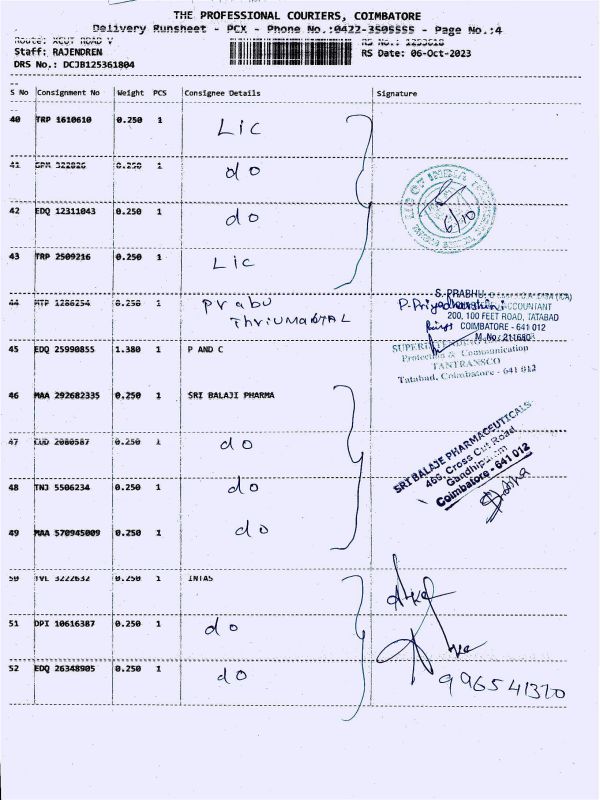 THE PROFESSIONAL COURIERS, COIMBATORE
Delivery Runsheet - PCX - Phone No.:0422-3505555 - Page No.:4
Route: XCUT ROAD V
Staff: RAJENDREN
RS Date: 06-Oct-2023
DRS No.: DCJB125361804
S No Consignment No Weight PCS Consignee Details Signature
40 TRP 1610610 0.250 1 Lic
41 322826 0.250 1 do
42 EDQ 12311043 0.250 1 do
43 TRP 2509216 0.250 1 Lic
6/10
44 1286254 0.250 1 Prabu
ThriUMARTAL
S. PRABHU
P. Priyadharshini
ACCOUNTANT
200, 100 FEET ROAD, TATABAD
COIMBATORE - 641 012
M.No: 211680
45 EDQ 25990855 1.380 1 P AND C
Protection & Communication
TANTRANSCO
Tatabad, Coimbatore - 641 012
46 MAA 292682335 0.250 1 SRI BALAJI PHARMA
47 CUD 2080587 0.250 1 do
48 TNJ 5506234 0.250 1 do
49 MAA 570945009 0.250 1 do
SRI BALAJE PHARMACEUTICALS
466, Cross Cut Road,
Gandhipuram
Coimbatore - 641 012
50 TVL 3222632 0.250 1 INTAS
51 DPI 10616387 0.250 1 do
52 EDQ 26348905 0.250 1 do
996541370